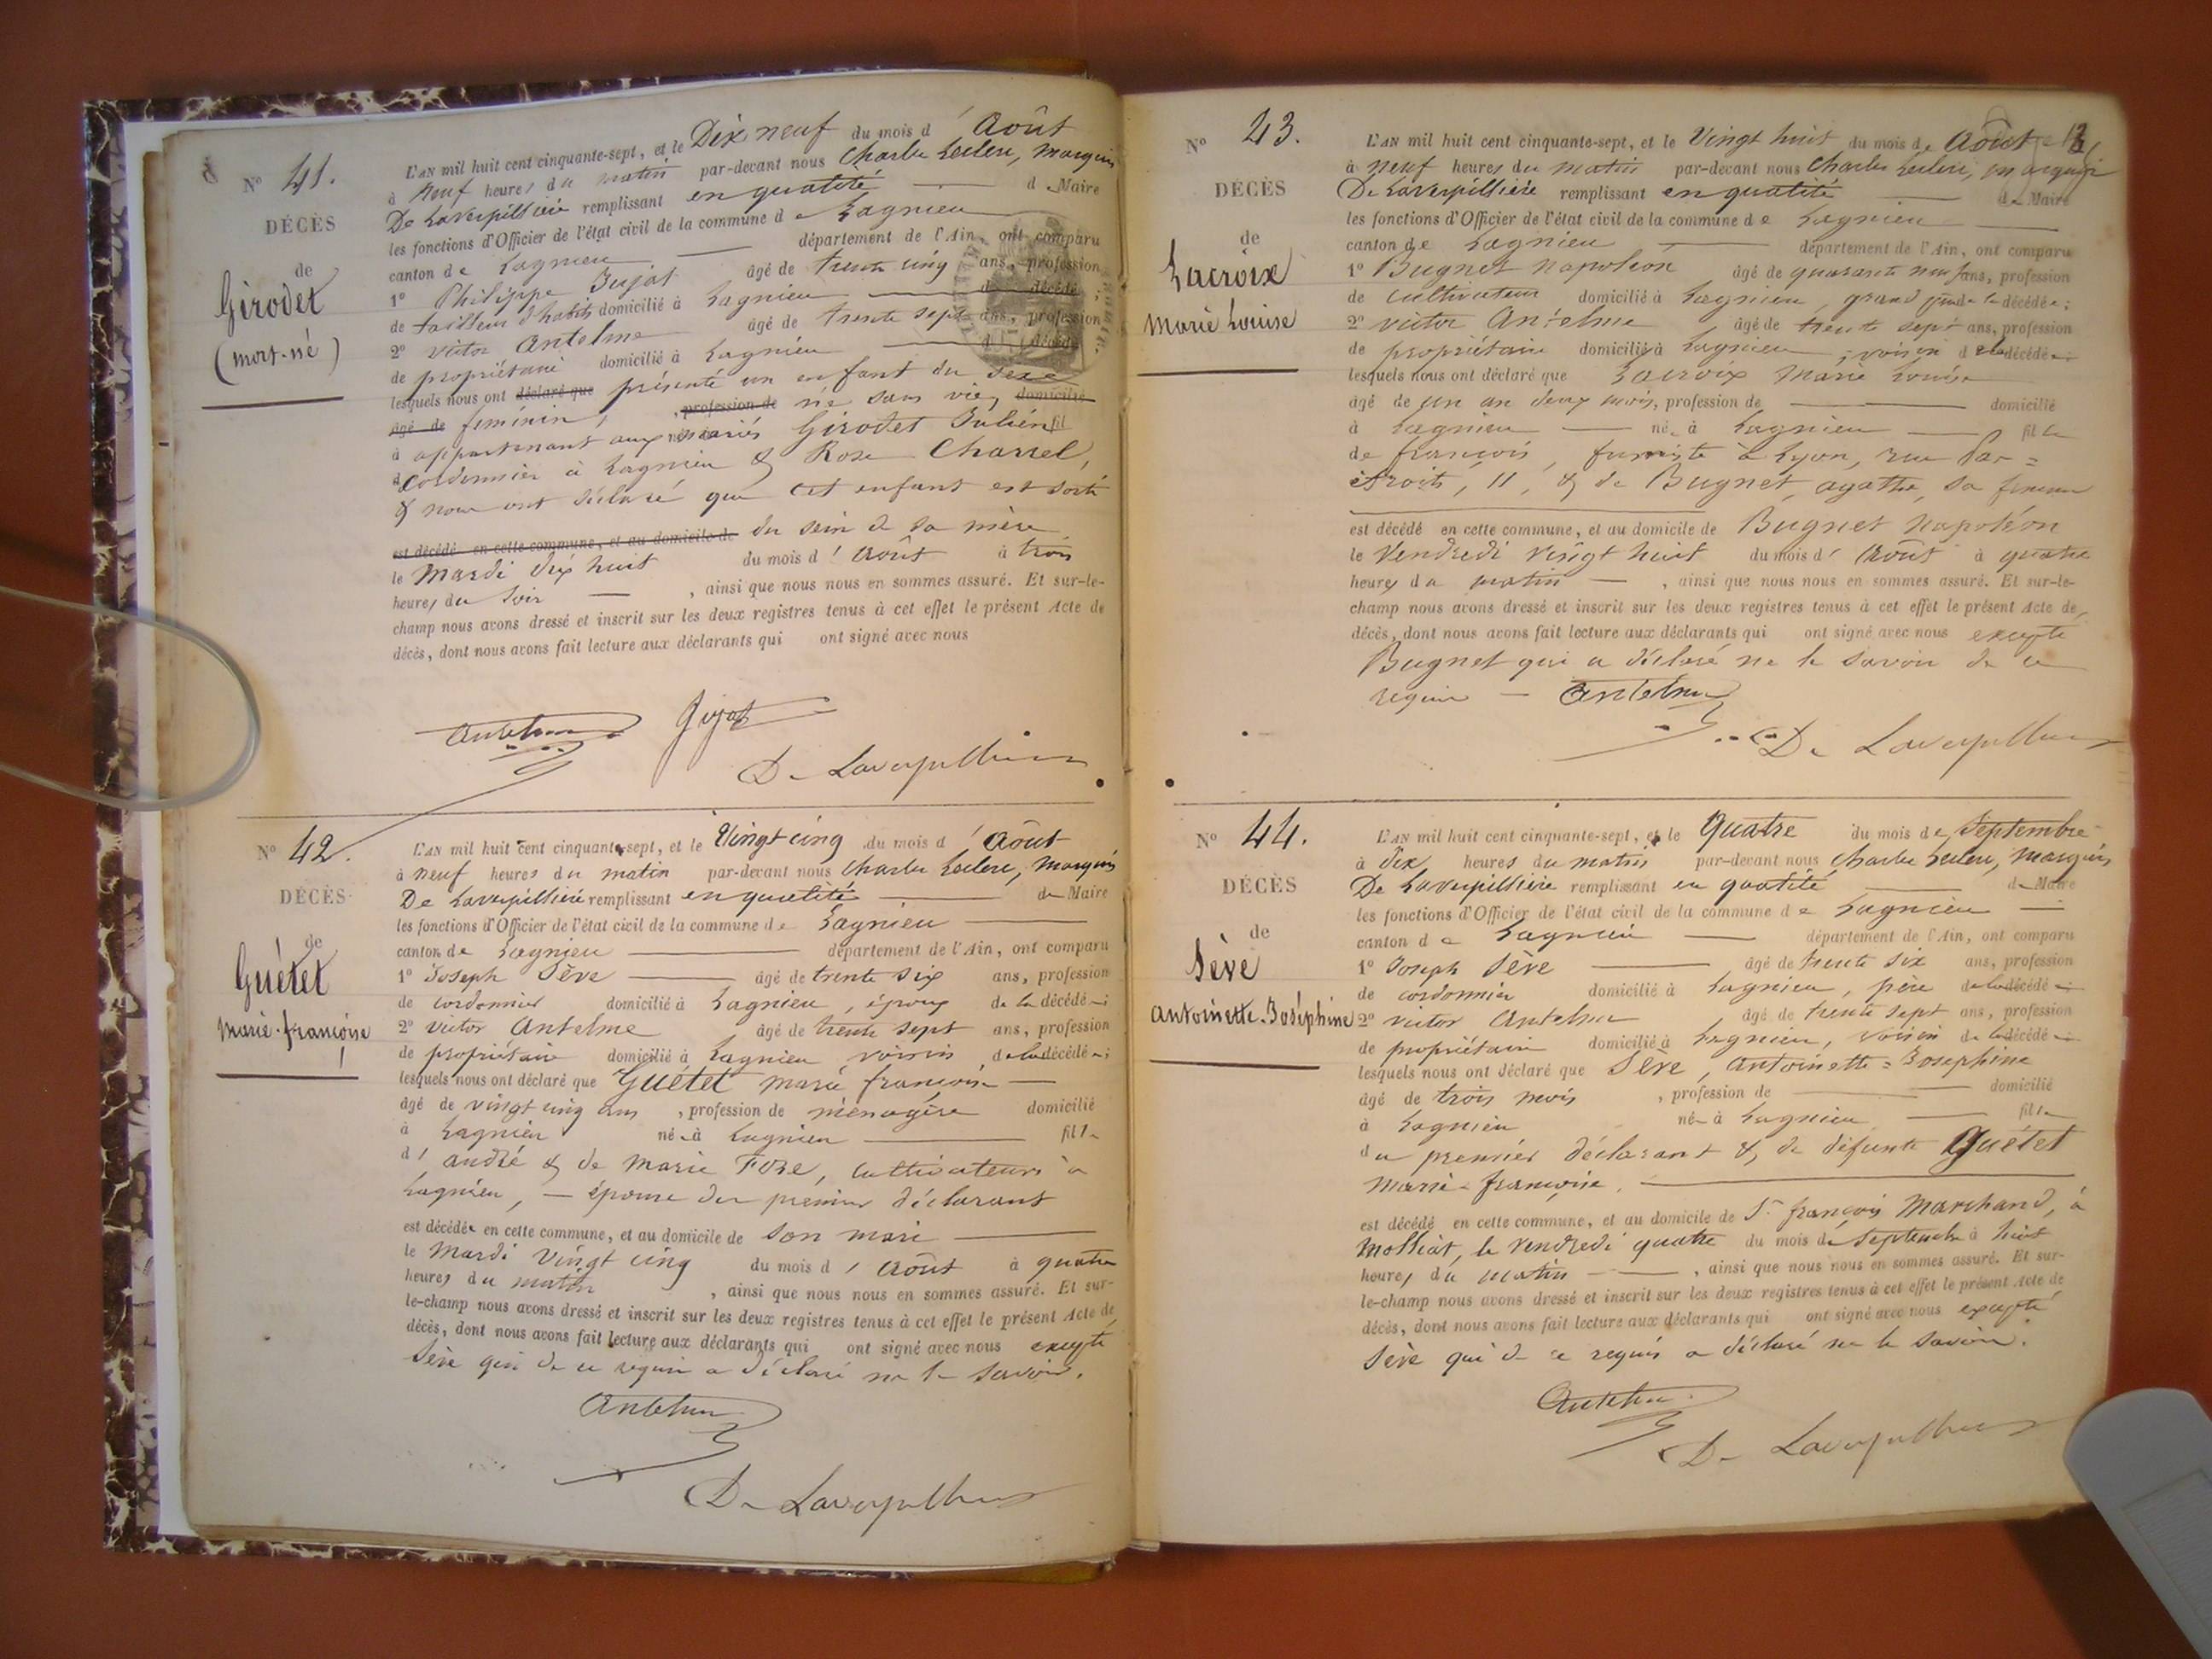 N° 41.
DÉCÈS
de
Girodet
(mort-né)
L'AN mil huit cent cinquante-sept, et le Dix neuf du mois d'Août
à neuf heures du matin par-devant nous Charles Leclerc, marquis
De Laverpillière remplissant en qualité de Maire
les fonctions d'Officier de l'état civil de la commune de Lagnieu
canton de Lagnieu département de l'Ain, ont comparu
1° Philippe Jujat âgé de trente cinq ans, profession
de tailleur d'habits domicilié à Lagnieu d décédé ;
2° victor Antelme âgé de trente sept ans, profession
de propriétaire domicilié à Lagnieu d décédé
lesquels nous ont déclaré que présenté un enfant du sexe
âgé de féminin, profession de né sans vie, domicilié
à appartenant aux mariés Girodet Julien fil
d Cordonnier à Lagnieu & Rose Charrel,
& nous ont déclaré que cet enfant est sorti
est décédé en cette commune, et au domicile de du sein de sa mère
le Mardi dix huit du mois d'Août à trois
heures du soir , ainsi que nous nous en sommes assuré. Et sur-le-
champ nous avons dressé et inscrit sur les deux registres tenus à cet effet le présent Acte de
décès, dont nous avons fait lecture aux déclarants qui ont signé avec nous
Antelme Jujat
De Laverpillière
N° 42.
DÉCÈS
de
Guétet
Marie-françoise
L'AN mil huit cent cinquante-sept, et le Vingt cinq du mois d'Août
à neuf heures du matin par-devant nous Charles Leclerc, Marquis
De Laverpillière remplissant en qualité de Maire
les fonctions d'Officier de l'état civil de la commune de Lagnieu
canton de Lagnieu département de l'Ain, ont comparu
1° Joseph Sève âgé de trente six ans, profession
de cordonnier domicilié à Lagnieu, époux de la décédée ;
2° victor Antelme âgé de trente sept ans, profession
de propriétaire domicilié à Lagnieu voisin de la décédée ;
lesquels nous ont déclaré que Guétet marie françoise
âgé de vingt cinq ans , profession de ménagère domicilié
à Lagnieu née à Lagnieu fille
d'andré & de Marie Fore, cultivateurs à
Lagnieu, — épouse du premier déclarant
est décédée en cette commune, et au domicile de son mari
le Mardi vingt cinq du mois d'Août à quatre
heures du matin , ainsi que nous nous en sommes assuré. Et sur-
le-champ nous avons dressé et inscrit sur les deux registres tenus à cet effet le présent Acte de
décès, dont nous avons fait lecture aux déclarants qui ont signé avec nous excepté
Sève qui de ce requis a déclaré ne le savoir.
Antelme
De Laverpillière
13
N° 43.
DÉCÈS
de
Lacroix
Marie Louise
L'AN mil huit cent cinquante-sept, et le Vingt huit du mois de Août
à neuf heures du matin par-devant nous Charles Leclerc, marquis
De Laverpillière remplissant en qualité de Maire
les fonctions d'Officier de l'état civil de la commune de Lagnieu
canton de Lagnieu département de l'Ain, ont comparu
1° Bugnet Napoléon âgé de quarante neuf ans, profession
de cultivateur domicilié à Lagnieu, grand père de la décédée ;
2° victor Antelme âgé de trente sept ans, profession
de propriétaire domicilié à Lagnieu ; voisin de la décédée
lesquels nous ont déclaré que Lacroix Marie Louise
âgé de un an deux mois, profession de domicilié
à Lagnieu née à Lagnieu fille
de françois, fumiste à Lyon, rue Par=
est décédé en cette commune, et au domicile de Bugnet Napoléon
le Vendredi vingt huit du mois d'Août à quatre
heures du matin , ainsi que nous nous en sommes assuré. Et sur-le-
champ nous avons dressé et inscrit sur les deux registres tenus à cet effet le présent Acte de
décès, dont nous avons fait lecture aux déclarants qui ont signé avec nous excepté
Bugnet qui a déclaré ne le savoir de ce
requis — Antelme
De Laverpillière
N° 44.
DÉCÈS
de
Sève
Antoinette-Joséphine
L'AN mil huit cent cinquante-sept, et le Quatre du mois de Septembre
à dix heures du matin par-devant nous Charles Leclerc, Marquis
De Laverpillière remplissant en qualité de Maire
les fonctions d'Officier de l'état civil de la commune de Lagnieu
canton de Lagnieu département de l'Ain, ont comparu
1° Joseph Sève âgé de trente six ans, profession
de cordonnier domicilié à Lagnieu, père de la décédée
2° victor Antelme âgé de trente sept ans, profession
de propriétaire domicilié à Lagnieu, voisin de la décédée
lesquels nous ont déclaré que Sève, Antoinette=Josephine
âgé de trois mois , profession de domicilié
à Lagnieu née à Lagnieu fille
du premier déclarant & de défunte Guétet
Marie-françoise.
est décédé en cette commune, et au domicile de Sr françois Marchand, à
le Vendredi quatre du mois de Septembre à huit
heures du matin , ainsi que nous nous en sommes assuré. Et sur-
le-champ nous avons dressé et inscrit sur les deux registres tenus à cet effet le présent Acte de
décès, dont nous avons fait lecture aux déclarants qui ont signé avec nous excepté
Sève qui de ce requis a déclaré ne le savoir.
Antelme
De Laverpillière